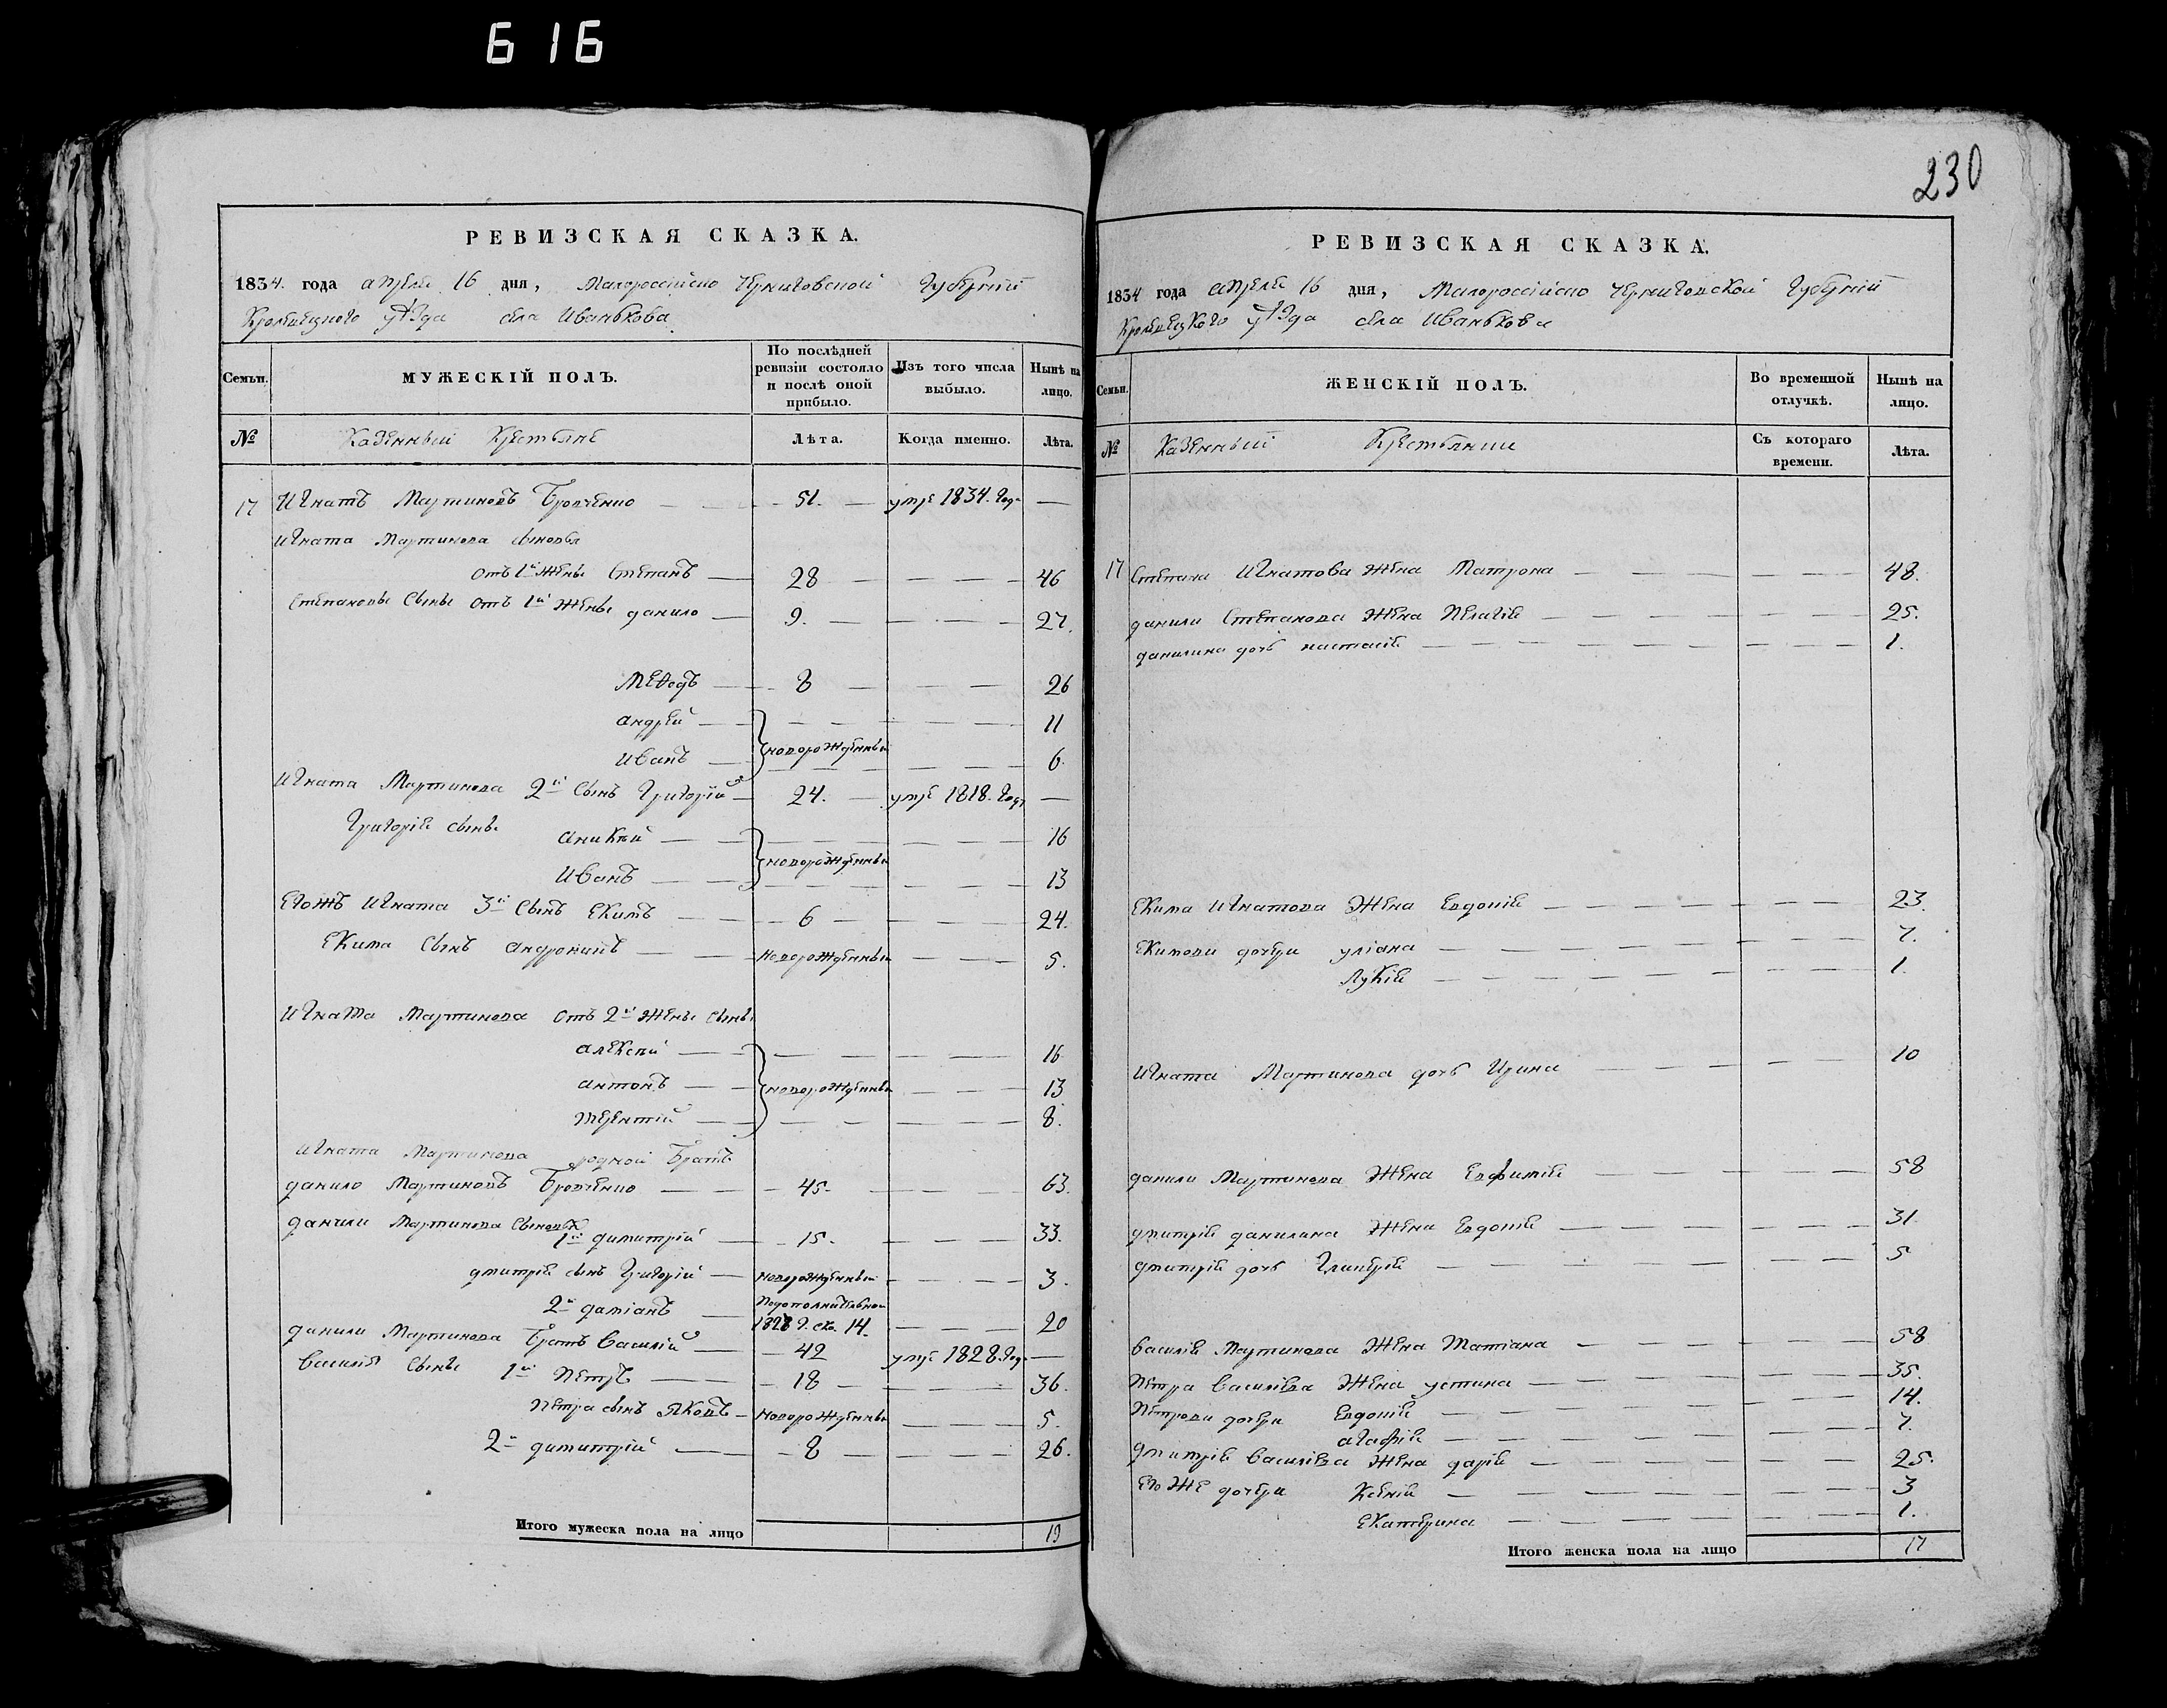 616
230
РЕВИЗСКАЯ СКАЗКА.
1834. года апреля 16 дня, Малороссійско Черниговской Губерніи
Кролевецкого уѣзда села Иванькова
Семьи.
МУЖЕСКІЙ ПОЛЪ.
По послѣдней ревизіи состояло и послѣ оной прибыло.
Изъ того числа выбыло.
Нынѣ на лицо.
№
Казенныи Крестьяне
Лѣта.
Когда именно.
Лѣта.
17 Игнатъ Мартиновъ Бровченко — 51. — умре 1834. Год. —
Игната Мартинова сыновья
отъ 1й жены Степанъ — 28 — 46
Степановы Сыны отъ 1й жены данило — 9. — 27.
Мефодъ — 8 — 26
андрей — 11
новорожденныи
Иванъ — 6.
Игната Мартинова 2й Сынъ Григорій — 24. — умре 1818. Году —
Григорія сыны аникей — 16
новорожденныи
Иванъ — 13
Егожъ Игната 3й Сынъ Екимъ — 6 — 24.
Екима Сынъ андроникъ — новорожденныи — 5.
Игната Мартинова отъ 2й жены сыны
алексѣй — 16
антонъ — новорожденныи — 13
терентій — 8.
Игната Мартинова родной Братъ
данило Мартиновъ Бровченко — 45. — 63.
данили Мартинова Сыновья
1й димитрій — 15. — 33.
дмитрія сынъ Григорій — новорожденныи — 3.
2й даміанъ — 14. — 20
данили Мартинова Братъ Василій — 42 умре 1828. Год. —
Василія Сыны 1й Петръ — 18 — 36.
Петра сынъ Яковъ — новорожденныи — 5.
2й димитрій — 8 — 26.
Итого мужеска пола на лицо 19
РЕВИЗСКАЯ СКАЗКА.
1834 года апреля 16 дня, Малороссійско Черниговской Губерніи
Кролевецкого уѣзда села Иванькова
Семьи.
ЖЕНСКІЙ ПОЛЪ.
Во временной отлучкѣ.
Нынѣ на лицо.
№
Казенныи Крестьянки
Съ котораго времени.
Лѣта.
17 Степана Игнатова жена Матрона — 48.
данили Степанова жена Пелагія — 25.
данилина дочь настасія — 1.
Екима Игнатова жена Евдокія — 23.
Екимови дочери уліана — 7.
Лукія — 1.
Игната Мартинова дочь Ирина — 10
данили Мартинова жена Евфимія — 58
дмитрія данилина жена Евдокія — 31
дмитрія дочь Гликерія — 5
василія Мартинова жена Татіана — 58
Петра Василіева жена устина — 35.
Петрови дочери Евдокія — 14.
агафія — 7.
дмитрія Василіева жена дарія — 25.
Его же дочери Ксенія — 3
Екатерина — 1.
Итого женска пола на лицо 17